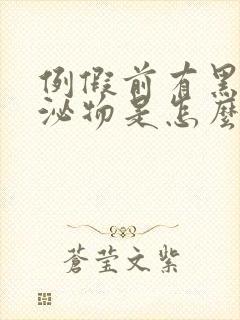 例假前有黑
泌物是怎麼
蒼莹文紫